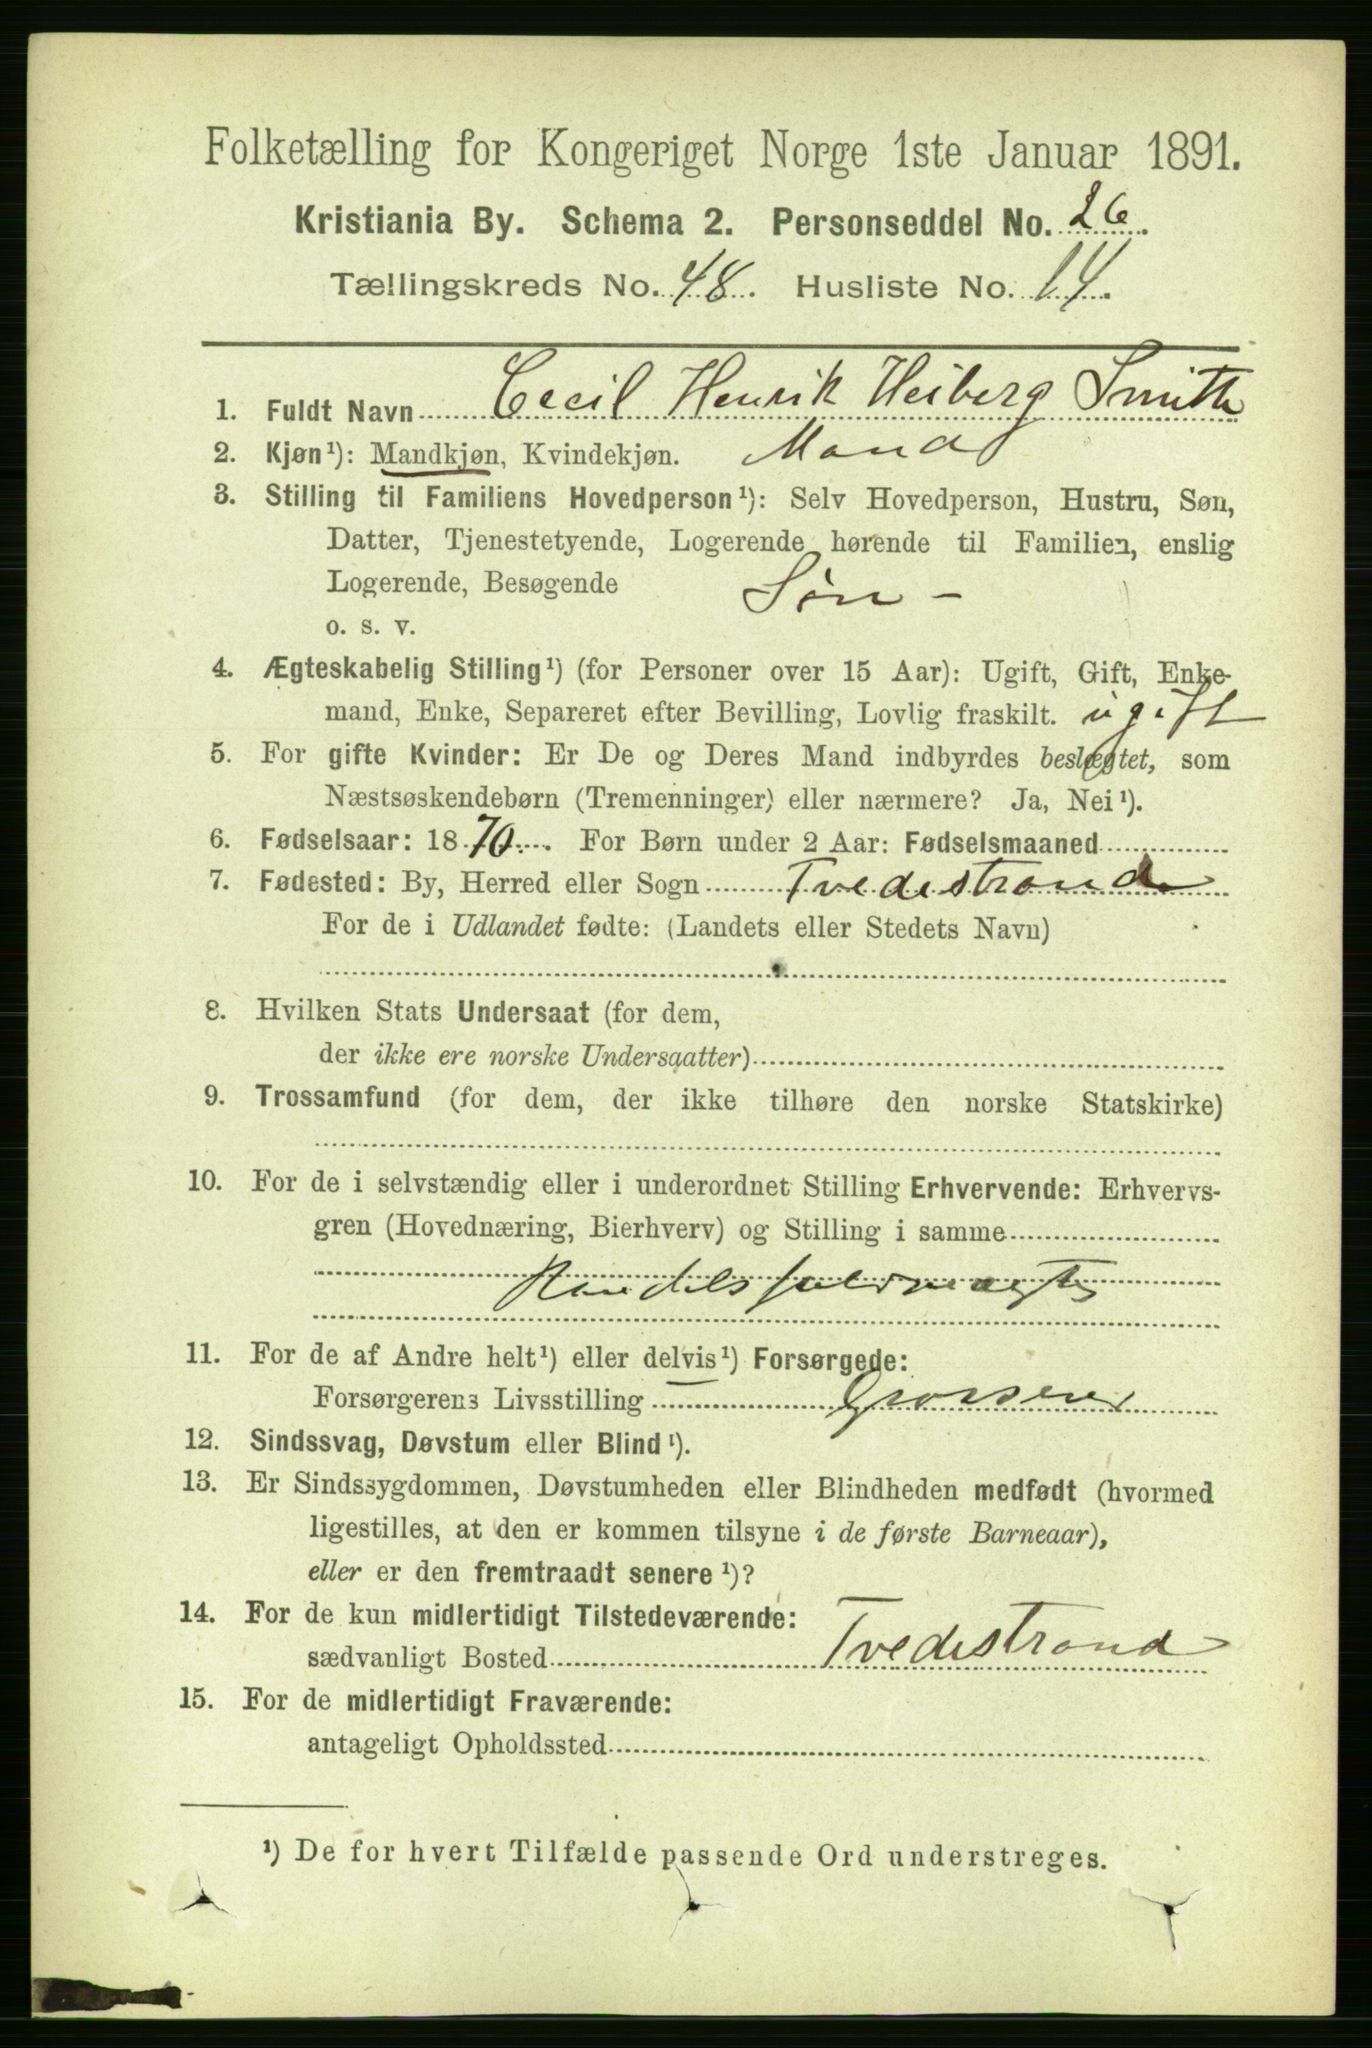 Folketælling for Kongeriget Norge 1ste Januar 1891.
Kristiania By. Schema 2. Personseddel No. 26.
Tællingskreds No. 48. Husliste No. 14.
1. Fuldt Navn Cecil Henrik Heiberg Smith
2. Kjøn¹): Mandkjøn, Kvindekjøn. Mand
3. Stilling til Familiens Hovedperson¹): Selv Hovedperson, Hustru, Søn,
Datter, Tjenestetyende, Logerende hørende til Familien, enslig
Logerende, Besøgende Søn -
o. s. v.
4. Ægteskabelig Stilling¹) (for Personer over 15 Aar): Ugift, Gift, Enke-
mand, Enke, Separeret efter Bevilling, Lovlig fraskilt. ugift
5. For gifte Kvinder: Er De og Deres Mand indbyrdes beslægtet, som
Næstsøskendebørn (Tremenninger) eller nærmere? Ja, Nei¹).
6. Fødselsaar: 1870. For Børn under 2 Aar: Fødselsmaaned
7. Fødested: By, Herred eller Sogn Tvedestrand
For de i Udlandet fødte: (Landets eller Stedets Navn)
8. Hvilken Stats Undersaat (for dem,
der ikke ere norske Undersaatter)
9. Trossamfund (for dem, der ikke tilhøre den norske Statskirke)
10. For de i selvstændig eller i underordnet Stilling Erhvervende: Erhvervs-
gren (Hovednæring, Bierhverv) og Stilling i samme
Handelsfuldmægtig
11. For de af Andre helt¹) eller delvis¹) Forsørgede:
Forsørgerens Livsstilling Grosserer
12. Sindssvag, Døvstum eller Blind¹).
13. Er Sindssygdommen, Døvstumheden eller Blindheden medfødt (hvormed
ligestilles, at den er kommen tilsyne i de første Barneaar),
eller er den fremtraadt senere¹)?
14. For de kun midlertidigt Tilstedeværende:
sædvanligt Bosted Tvedestrand
15. For de midlertidigt Fraværende:
antageligt Opholdssted
¹) De for hvert Tilfælde passende Ord understreges.